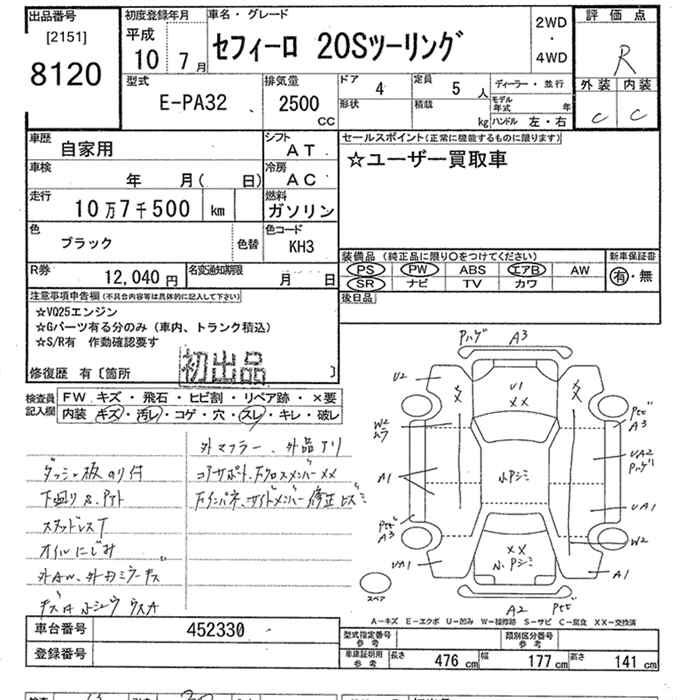 出品番号
[2151]
8120
初度登録年月
平成
10年 7月
車名・グレード
セフィーロ 20Sツーリング
2WD
・
4WD
評価点
R
外装 内装
C C
型式
E-PA32
排気量
2500
CC
ドア 4
形状
定員 5 人
積載 kg
ディーラー・並行
モデル年式 年
ハンドル 左・右
車歴 自家用
シフト AT
車検 年 月( 日)
冷房 AC
走行 10万7千500 km
燃料 ガソリン
色 ブラック
色替
色コード KH3
R券 12,040円
名変通知期限 月 日
セールスポイント(正常に機能するものに限ります)
☆ユーザー買取車
装備品 (純正品に限り○をつけてください)
PS PW ABS エアB AW
SR ナビ TV カワ
新車保証書
有・無
後日品
注意事項申告欄(不具合内容等は具体的に記入して下さい)
☆VQ25エンジン
☆Gパーツ有る分のみ(車内、トランク積込)
☆S/R有 作動確認要す
初出品
修復歴 有〔箇所 〕
検査員記入欄
FW キズ・飛石・ヒビ割・リペア跡・×要
内装 キズ・汚レ・コゲ・穴・スレ・キレ・破レ
外マフラー、外品アリ
ダッシュ板のり付
コアサポート、Fクロスメンバー××
下廻りサビ
Fインパネ、サイドメンバー修正
スタッドレスT
オイルにじみ
外AW、外
A3
U2
U1
××
W2
A3
UA2
A1
小Pシミ
UA1
A3
W2
××
UA1
小、Pシミ
A1
A2
スペア
A-キズ E-エクボ U-凹み W-補修跡 S-サビ C-腐食 XX-交換済
車台番号 452330
登録番号
型式指定番号 参考
類別区分番号 参考
車庫証明用 参考 長さ 476cm 幅 177cm 高さ 141cm